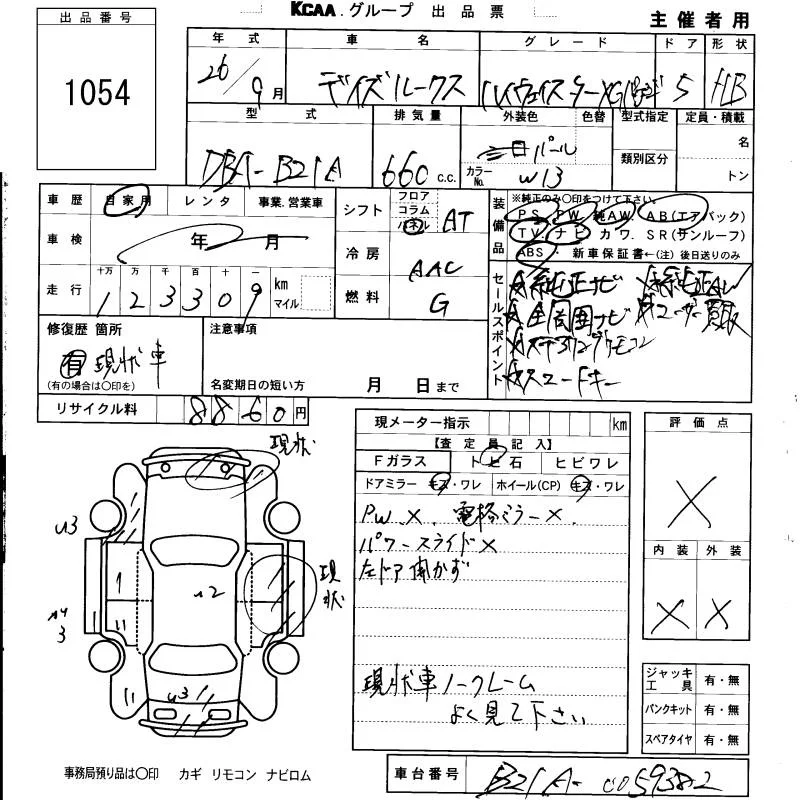 KCAA.グループ 出品票
主催者用
出品番号
1054
年式 車名 グレード ドア 形状
26/9月 デイズルークス ハイウェイスターXGパッケージ 5 HB
型式 排気量 外装色 色替 型式指定 定員・積載
DBA-B21A 660 c.c. 白パール 名
カラーNo. W13 類別区分 トン
車歴 自家用 レンタ 事業.営業車
車検 年 月
走行 十万 万 千 百 十 一
123309 km マイル
シフト フロア コラム パネル AT
冷房 AAC
燃料 G
装備品 ※純正のみ○印をつけて下さい。
PS. PW. 純AW. AB(エアバック)
TV. ナビ カワ. SR(サンルーフ)
ABS ・新車保証書←(注)後日送りのみ
セールスポイント
☆純正ナビ ☆純正AW
☆全周囲ナビ ☆ユーザー買取
☆ステアリングリモコン
☆スマートキー
修復歴 箇所
有 現状車
(有の場合は○印を)
注意事項
名変期日の短い方 月 日まで
リサイクル料 8860円
現状
u3
現状
1
A2
A4
3
11
11
u3
事務局預り品は○印 カギ リモコン ナビロム
現メーター指示 km
【査定員記入】
Fガラス トビ石 ヒビワレ
ドアミラー キズ・ワレ ホイール(CP) キズ・ワレ
PW×. 電格ミラー×.
パワースライド×
左ドア開かず
現状車ノークレーム
よく見て下さい
評価点
×
内装 外装
× ×
ジャッキ工具 有・無
パンクキット 有・無
スペアタイヤ 有・無
車台番号 B21A-0059382